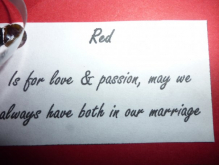 Red
Is for love & passion, may we
always have both in our marriage